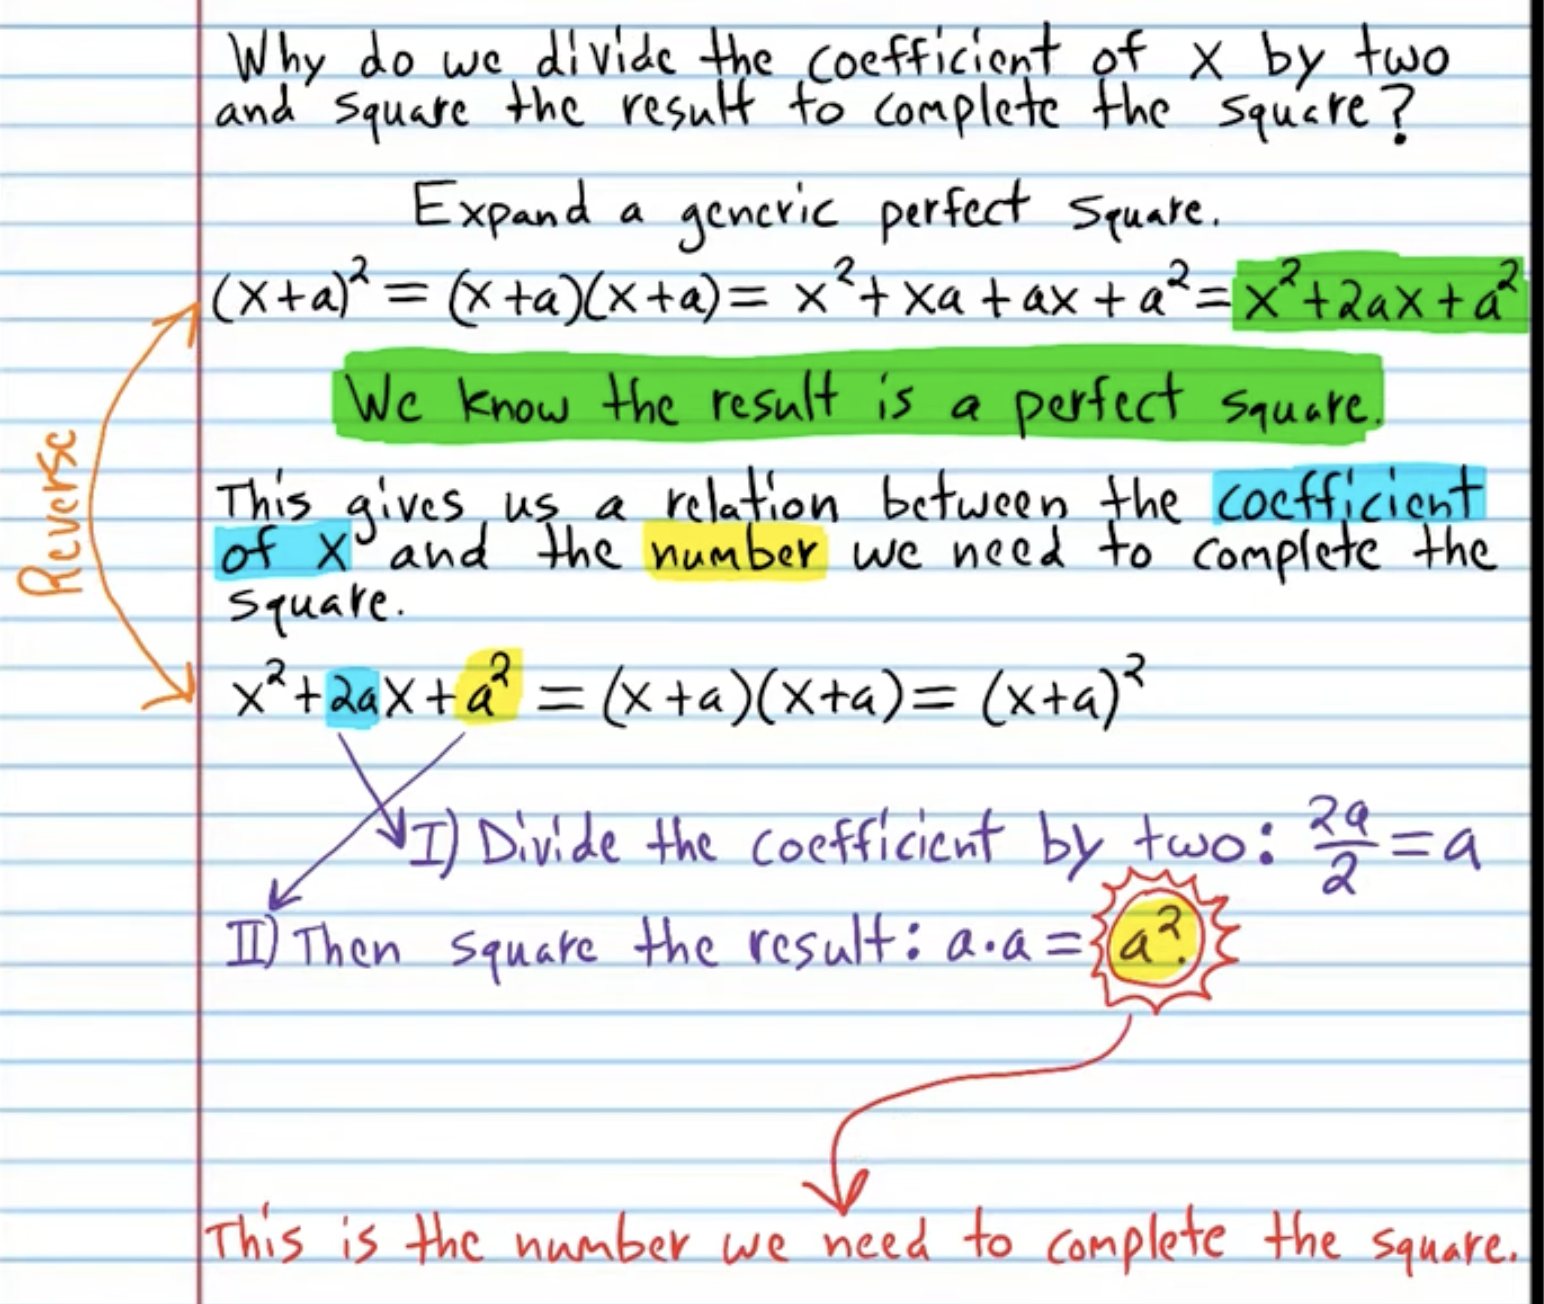 Why do we divide the coefficient of x by two
and square the result to complete the square?
Expand a generic perfect square.
(x+a)² = (x+a)(x+a) = x² + xa + ax + a² = x² + 2ax + a²
We know the result is a perfect square.
Reverse
This gives us a relation between the coefficient
of x and the number we need to complete the
square.
x² + 2ax + a² = (x+a)(x+a) = (x+a)²
I) Divide the coefficient by two: 2a/2 = a
II) Then square the result: a·a = a².
This is the number we need to complete the square.